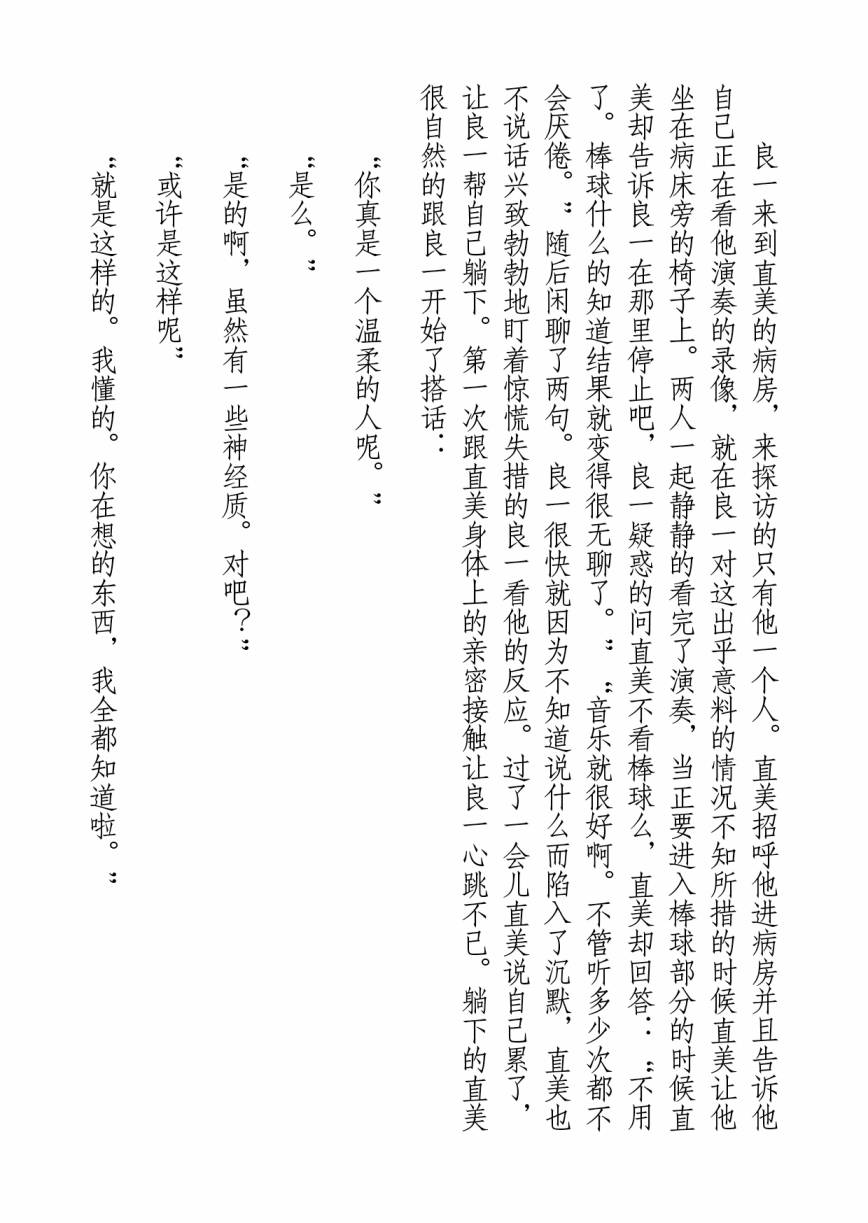 良一来到直美的病房，来探访的只有他一个人。直美招呼他进病房并且告诉他
自己正在看他演奏的录像，就在良一对这出乎意料的情况不知所措的时候直美让他
坐在病床旁的椅子上。两人一起静静的看完了演奏，当正要进入棒球部分的时候直
美却告诉良一在那里停止吧，良一疑惑的问直美不看棒球么，直美却回答：“不用
了。棒球什么的知道结果就变得很无聊了。”“音乐就很好啊。不管听多少次都不
会厌倦。”随后闲聊了两句。良一很快就因为不知道说什么而陷入了沉默，直美也
不说话兴致勃勃地盯着惊慌失措的良一看他的反应。过了一会儿直美说自己累了，
让良一帮自己躺下。第一次跟直美身体上的亲密接触让良一心跳不已。躺下的直美
很自然的跟良一开始了搭话：
“你真是一个温柔的人呢。”
“是么。”
“是的啊，虽然有一些神经质。对吧？”
“或许是这样呢”
“就是这样的。我懂的。你在想的东西，我全都知道啦。”